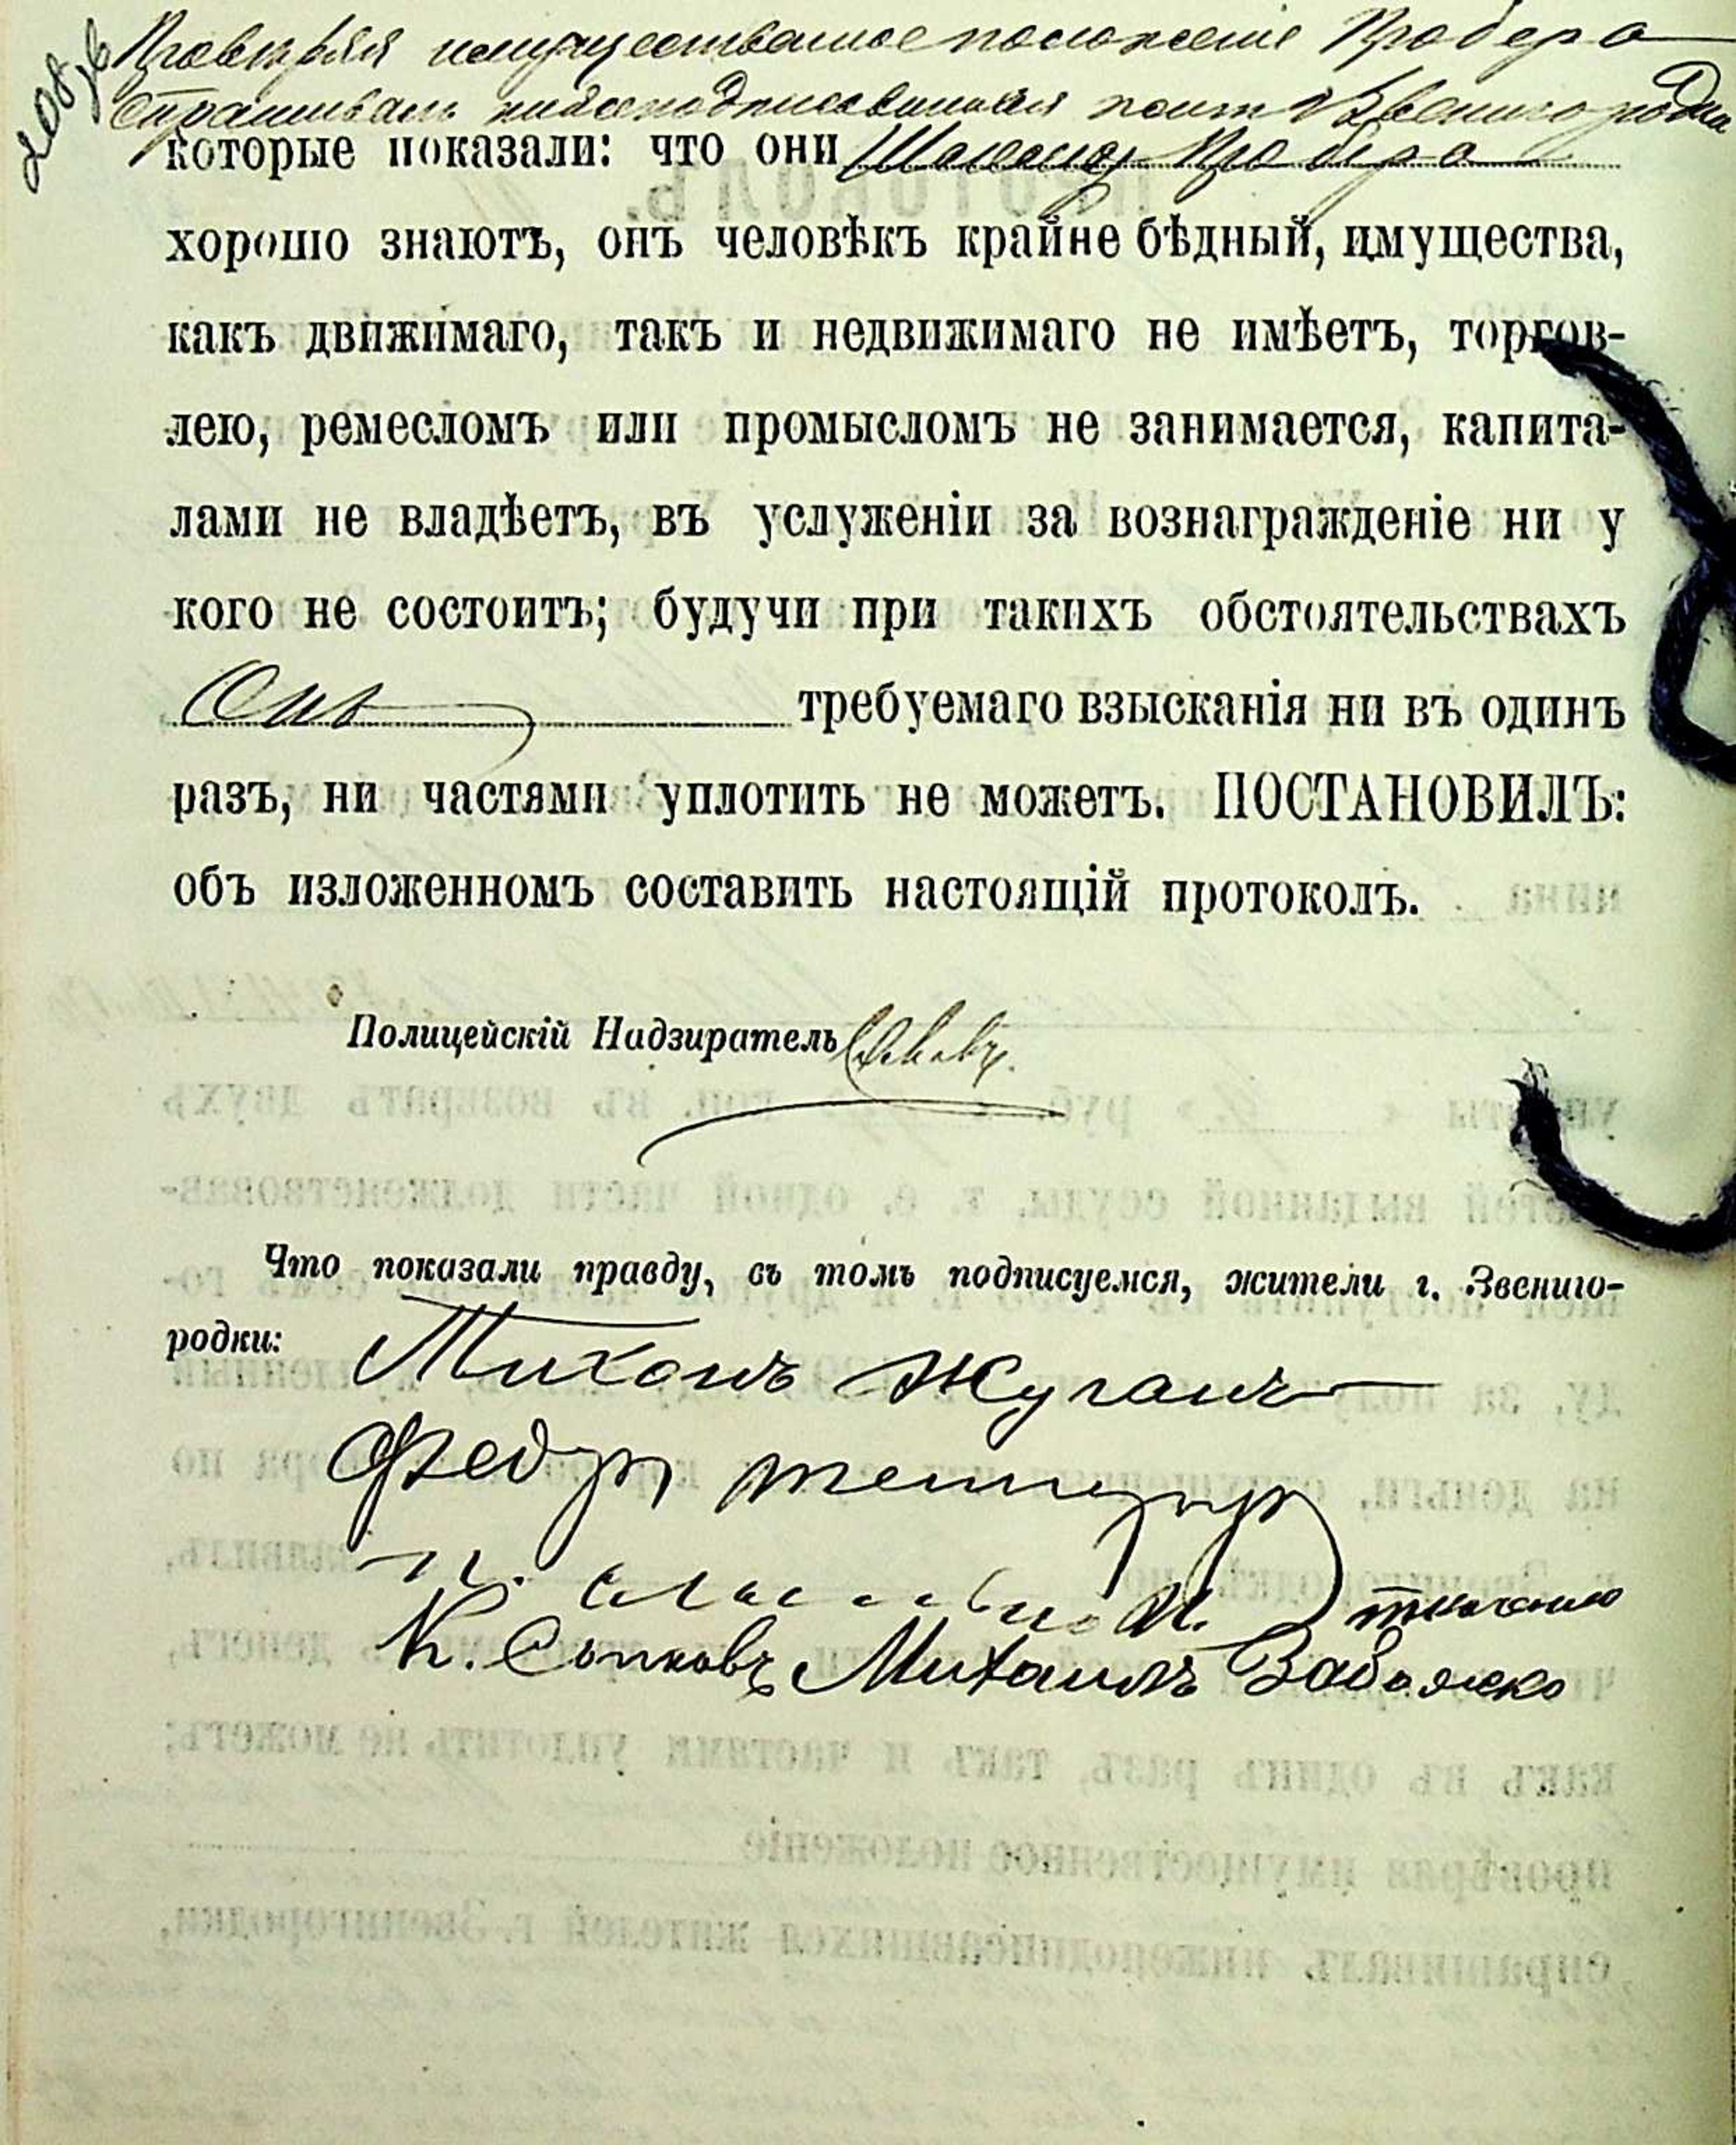 Провѣряя имущественное положеніе Пробера
спрашивалъ нижеподписавшихся
которые показали: что они Пробера
хорошо знаютъ, онъ человѣкъ крайне бѣдный, имущества,
какъ движимаго, такъ и недвижимаго не имѣетъ, торгов-
лею, ремесломъ или промысломъ не занимается, капита-
лами не владѣетъ, въ услуженіи за вознагражденіе ни у
кого не состоитъ; будучи при такихъ обстоятельствахъ
Онъ требуемаго взысканія ни въ одинъ
разъ, ни частями уплотить не можетъ. ПОСТАНОВИЛЪ:
объ изложенномъ составить настоящій протоколъ.
Полицейскій Надзиратель
Что показали правду, въ томъ подписуемся, жители г. Звениго-
родки:
Тихонъ Жуганъ
Федоръ
К. Сопковъ Михаилъ